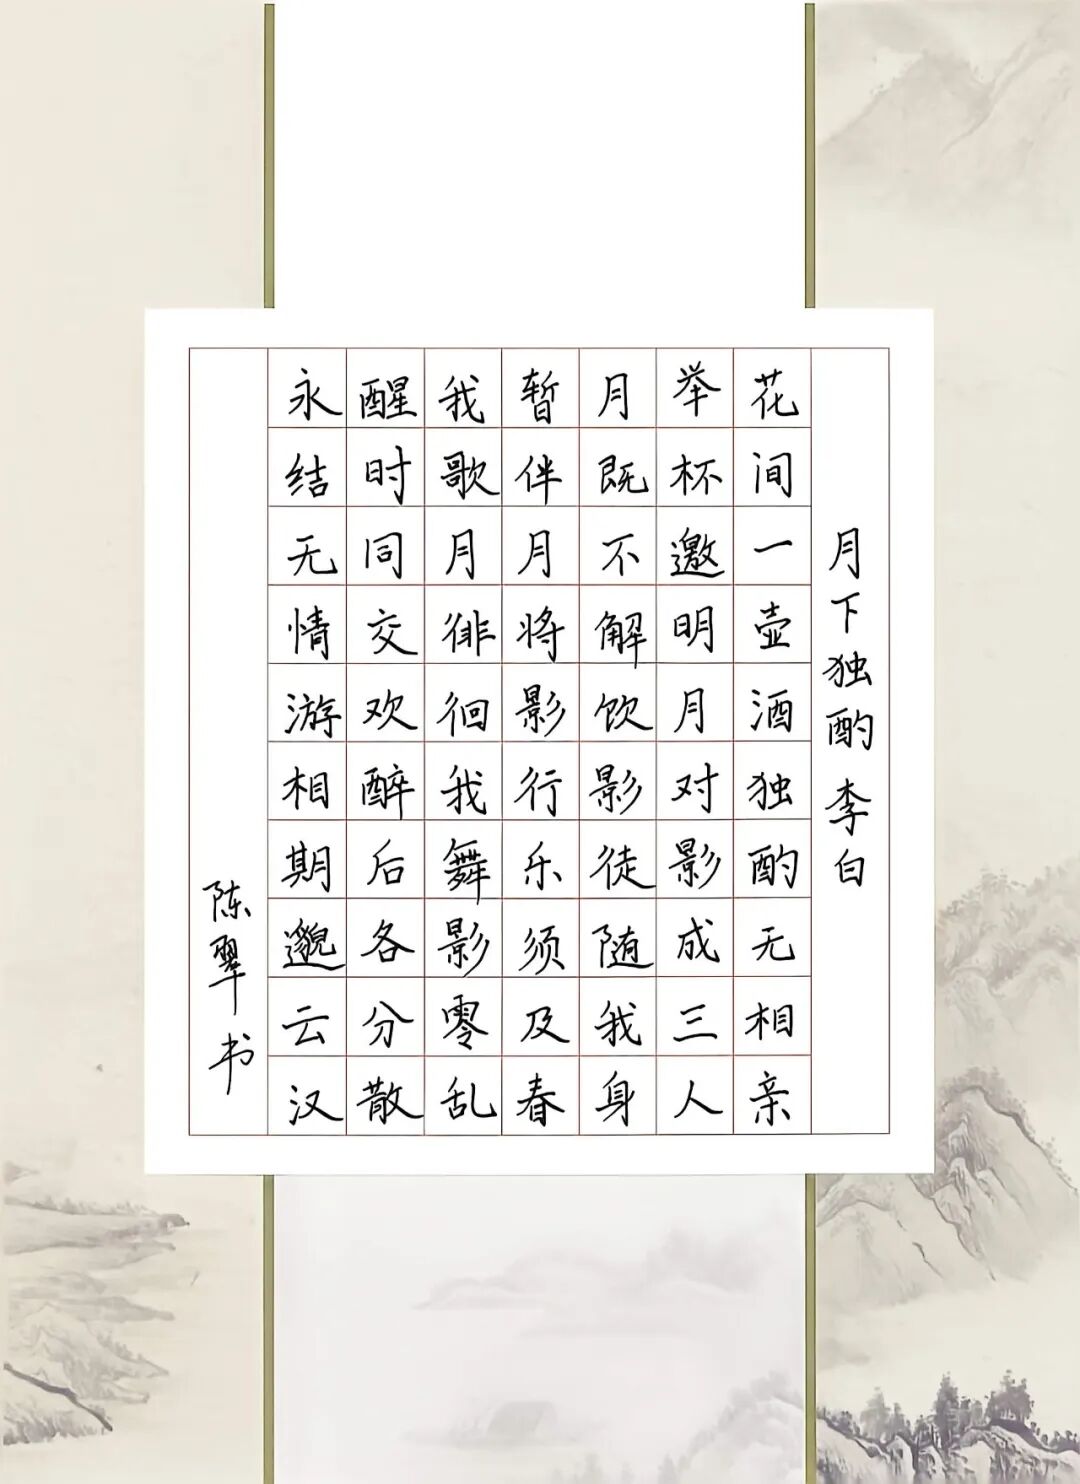 月下独酌 李白
花间一壶酒独酌无相亲
举杯邀明月对影成三人
月既不解饮影徒随我身
暂伴月将影行乐须及春
我歌月徘徊我舞影零乱
醒时同交欢醉后各分散
永结无情游相期邈云汉
陈翠书